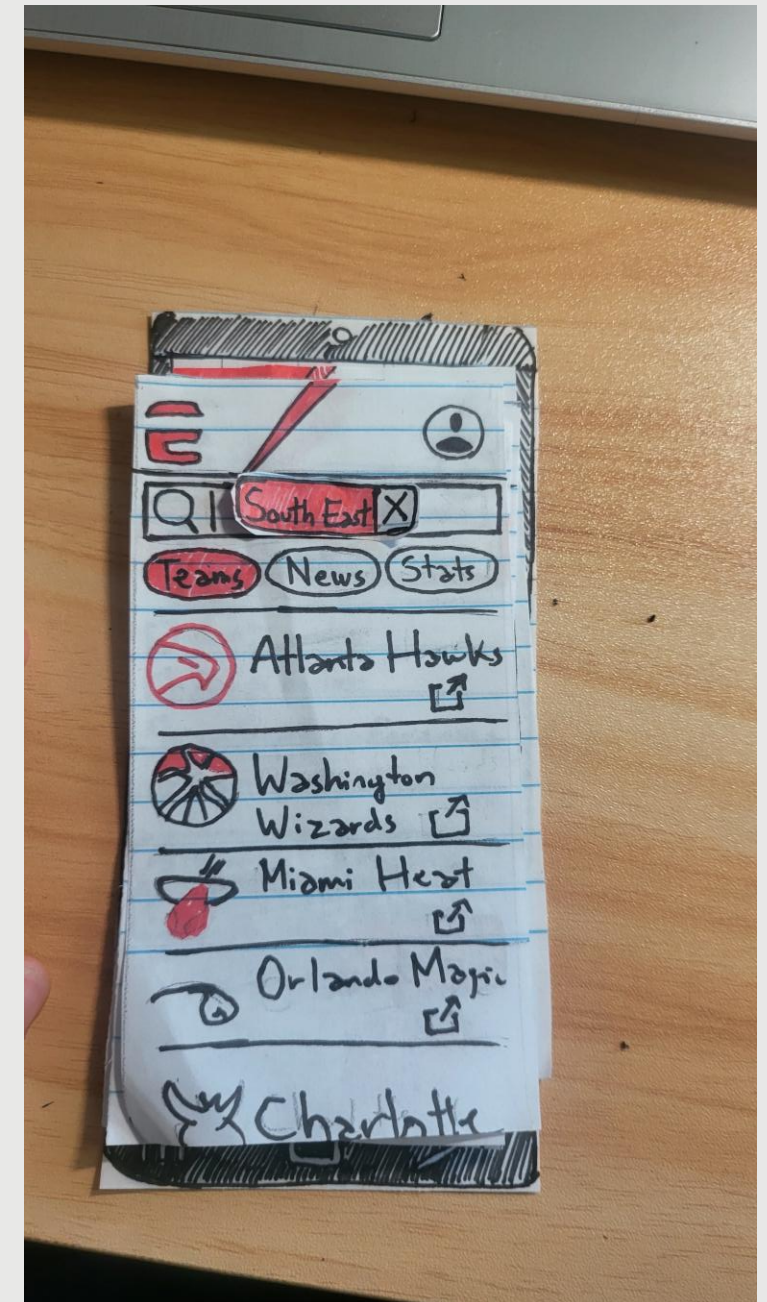 South East X
Teams News Stats
Atlanta Hawks
Washington
Wizards
Miami Heat
Orlando Magic
Charlotte